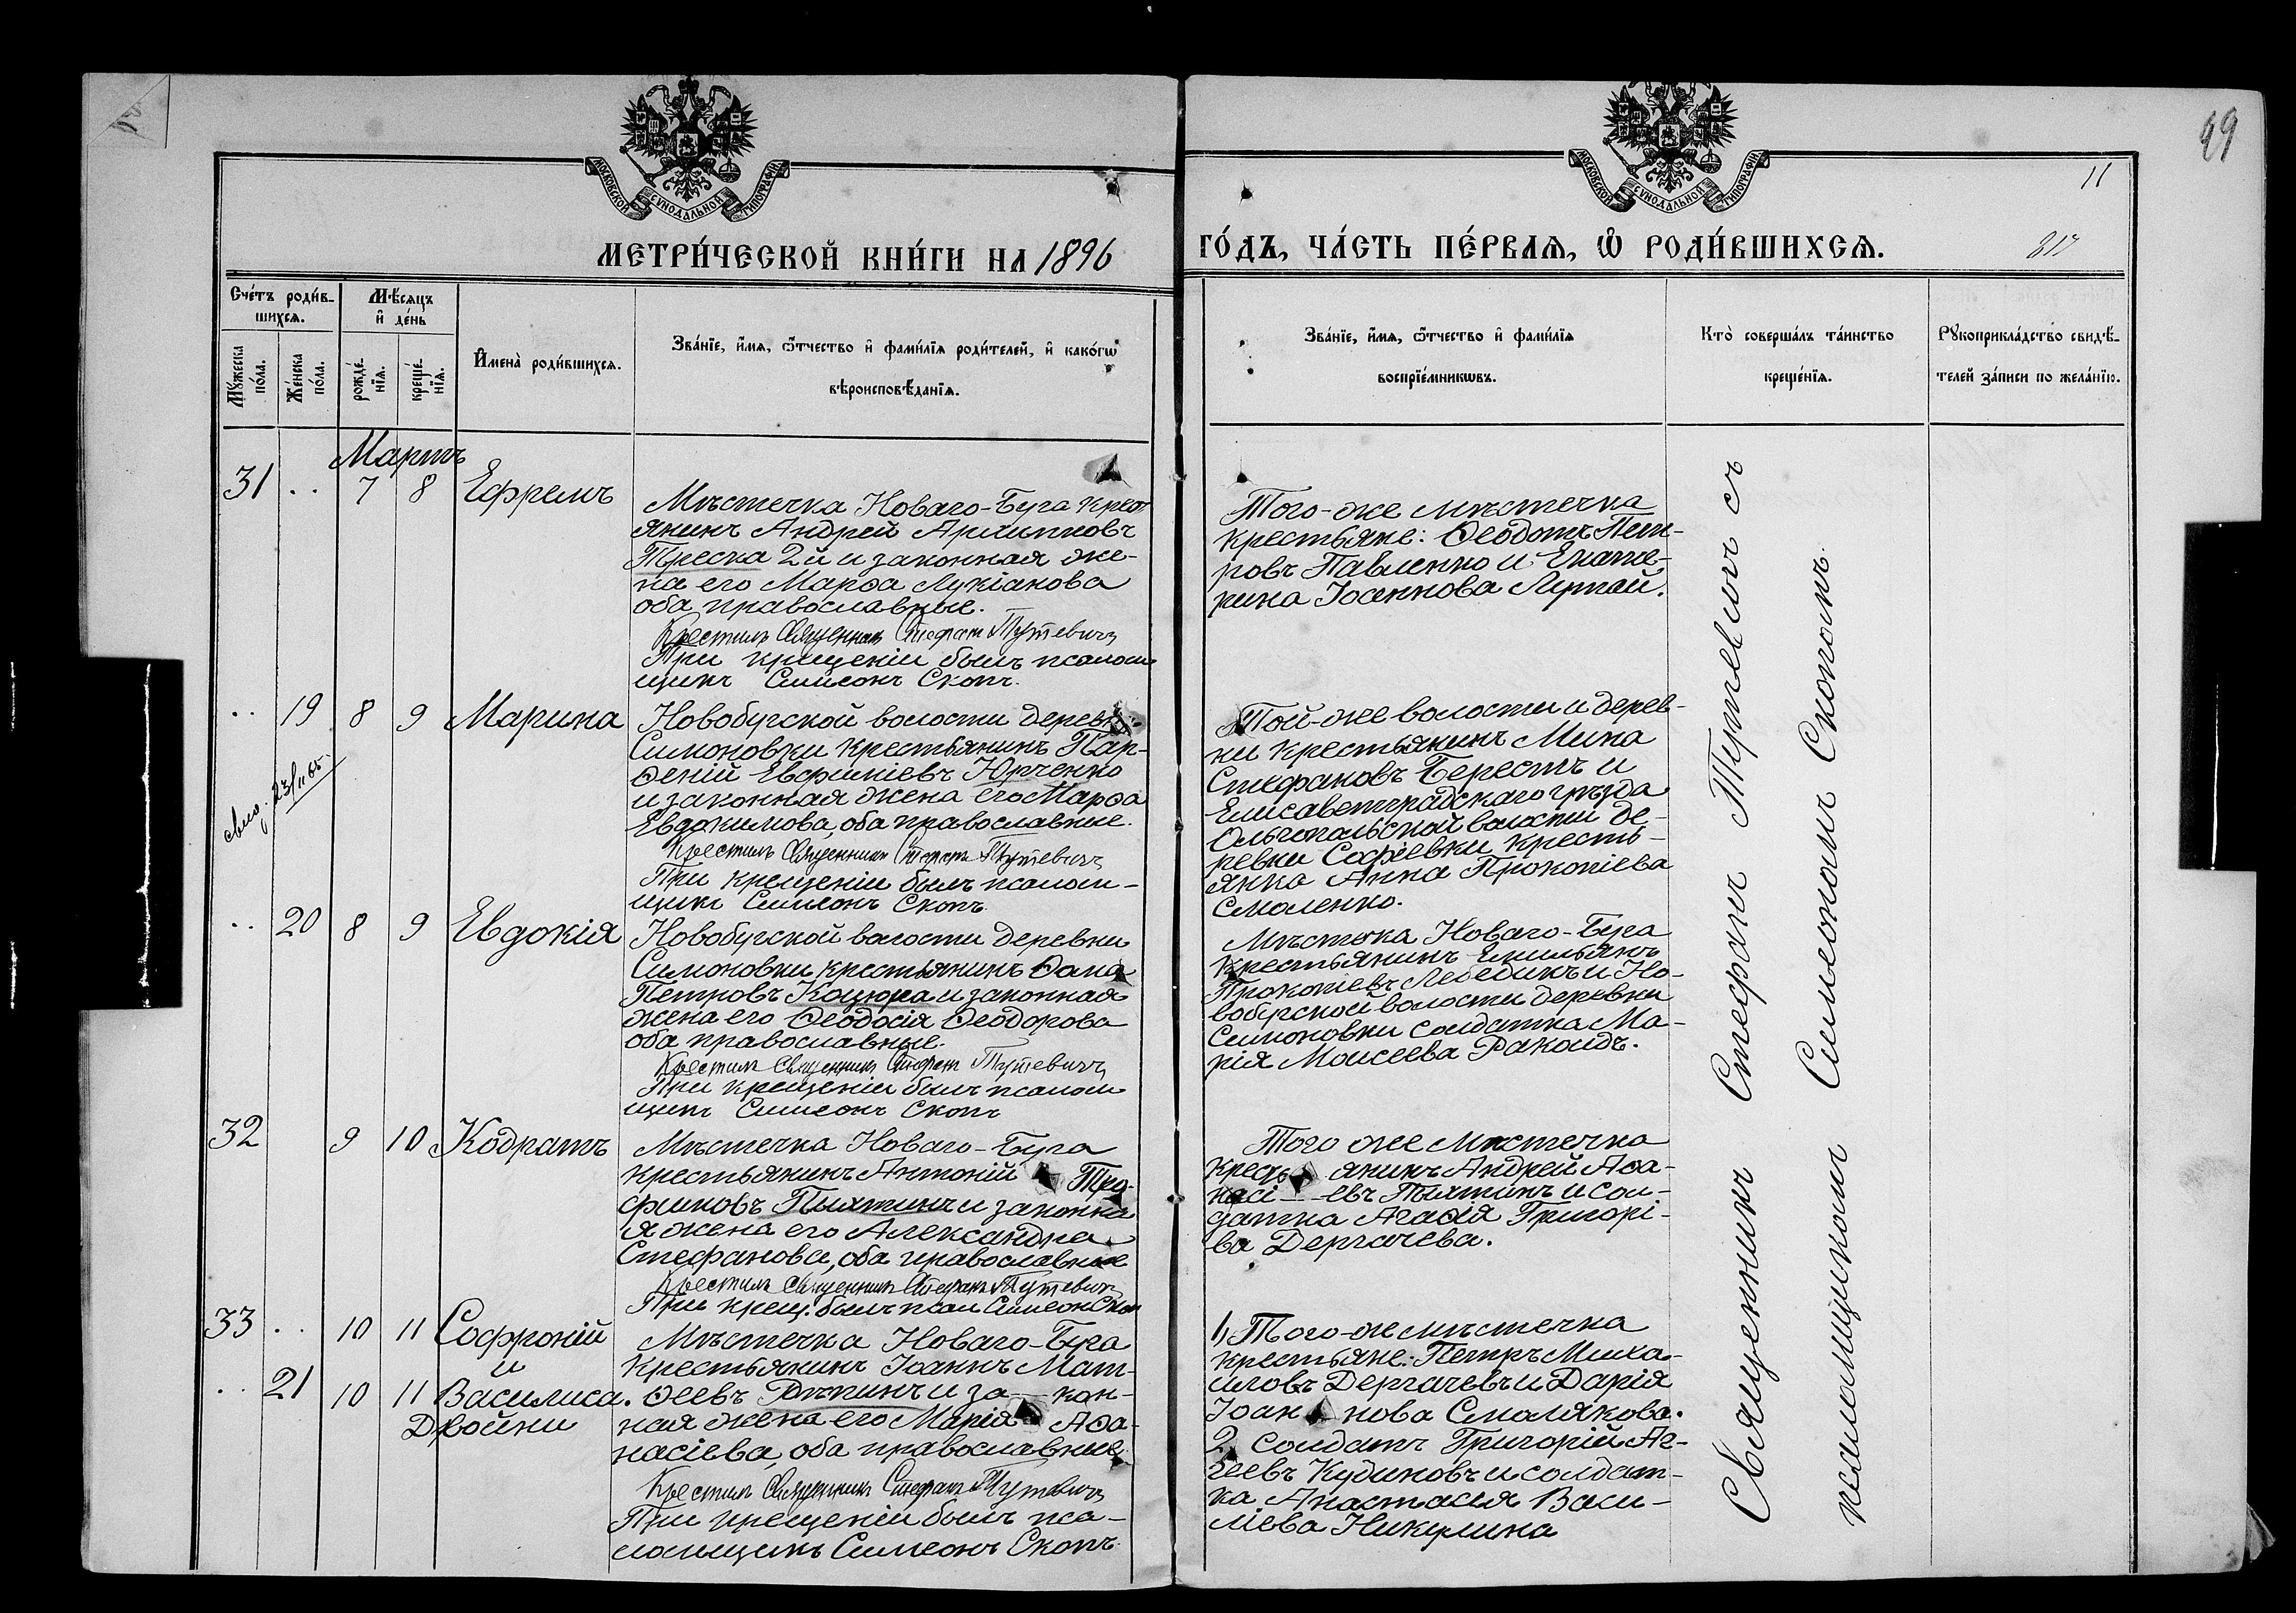 49
11
817
МОСКОВСКОЙ СУНОДАЛЬНОЙ ТИПОГРАФІИ
МОСКОВСКОЙ СУНОДАЛЬНОЙ ТИПОГРАФІИ
МЕТРИ́ЧЕСКОЙ КНИ́ГИ НА 1896
ГО́ДЪ, ЧА́СТЬ ПЕ́РВАѦ, Ѽ РОДИ́ВШИХСѦ.
Сче́тъ роди́в-
шихсѧ.
Мѣ́сяцъ
и҆ де́нь
Мꙋ́жеска
по́ла.
Же́нска
по́ла.
рожде́-
нїѧ.
креще́-
нїѧ.
И҆мена̀ роди́вшихсѧ.
Зва́нїе, и҆́мѧ, ѻ҆́тчество и҆ фами́лїѧ роди́телей, и҆ како́гѡ
вѣроисповѣ́данїѧ.
Зва́нїе, и҆́мѧ, ѻ҆́тчество и҆ фами́лїѧ
воспрїе́мникѡвъ.
Кто̀ соверша́лъ та́инство
креще́нїѧ.
Рꙋкоприкла́дство свидѣ́-
телей за́писи по жела́нїю.
Мартъ
31 .. 7 8 Ефремъ
Мѣстечка Новаго-Буга крест
янинъ Андрей Архиповъ
Треска 2й и законная же-
на его Марѳа Лукіанова
оба православные.
Крестилъ Священник Стефанъ Тутевичъ
При крещеніи былъ псалом
щикъ Симеонъ Скопъ.
Того-же мѣстечка
крестьяне: Ѳеодотъ Пет-
ровъ Павленко и Екате-
рина Іоаннова Луптай.
.. 19 8 9 Марина
23/II 65.
Новобугской волости деревни
Симоновки крестьянинъ Пар-
ѳеній Евфиміевъ Юрченко
и законная жена его Марѳа
Евдокимова, оба православные.
Крестилъ Священникъ Стефанъ Тутевичъ
При крещеніи былъ псалом-
щикъ Симеонъ Скопъ.
Той-же волости и дерев-
ни крестьянинъ Мина
Стефановъ Берестъ и
Елисаветградскаго уѣзда
Ольгопольской волости де-
ревни Софіевки кресть-
янка Анна Прокопіева
Смоленко.
.. 20 8 9 Евдокія
Новобугской волости деревни
Симоновки крестьянинъ Ѳома
Петровъ Коцюра и законная
жена его Ѳеодосія Ѳеодорова
оба православные.
Крестилъ Священникъ Стефанъ Тутевичъ
При крещеніи былъ псалом
щикъ Симеонъ Скопъ
Мѣстечка Новаго-Буга
крестьянинъ Емильянъ
Прокопіевъ Лебединъ и Но-
вобугской волости деревни
Симоновки солдатка Ма-
рія Моисеева Ракоидъ.
32 9 10 Кодратъ
Мѣстечка Новаго-Буга
крестьянинъ Антоній Тро-
фимовъ Пыхтинъ и законна
я жена его Александра
Стефанова, оба православные
Крестилъ Священникъ Стефанъ Тутевичъ
При крещ. былъ псал Симеонъ Скоп
Того же мѣстечка
кресть янинъ Андрей Аѳа-
насі--евъ Пыхтинъ и сол-
датка Агаѳія Григорі-
ва Дергачева.
33 .. 10 11 Софроній
и
.. 21 10 11 Василиса.
Двойни
Мѣстечка Новаго-Буга
крестьянинъ Іоаннъ Мат-
ѳеевъ Рѣпинъ и за--кон-
ная жена его Марія Аѳа-
насіева, оба православные.
Крестилъ Священникъ Стефанъ Тутевичъ
При крещеніи былъ пса-
ломщикъ Симеонъ Скопъ.
1, Того-же мѣстечка
крестьяне: Петръ Миха-
иловъ Дергачевъ и Дарія
Іоан--нова Смолякова.
2, солдатъ Григорій Аг-
геевъ Кудиновъ и солдат-
ка Анастасія Васи-
ліева Никулина
Священникъ Стефанъ Тутевичъ съ
псаломщикомъ Симеономъ Скопомъ.